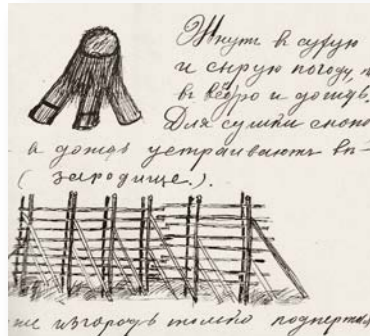 Жнутъ въ сухую
и сырую погоду, п
въ вёдро и дождь.
Для сушки снопо
в дождь устраиваютъ вы-
( зародище. ).
же изгородь только подперта